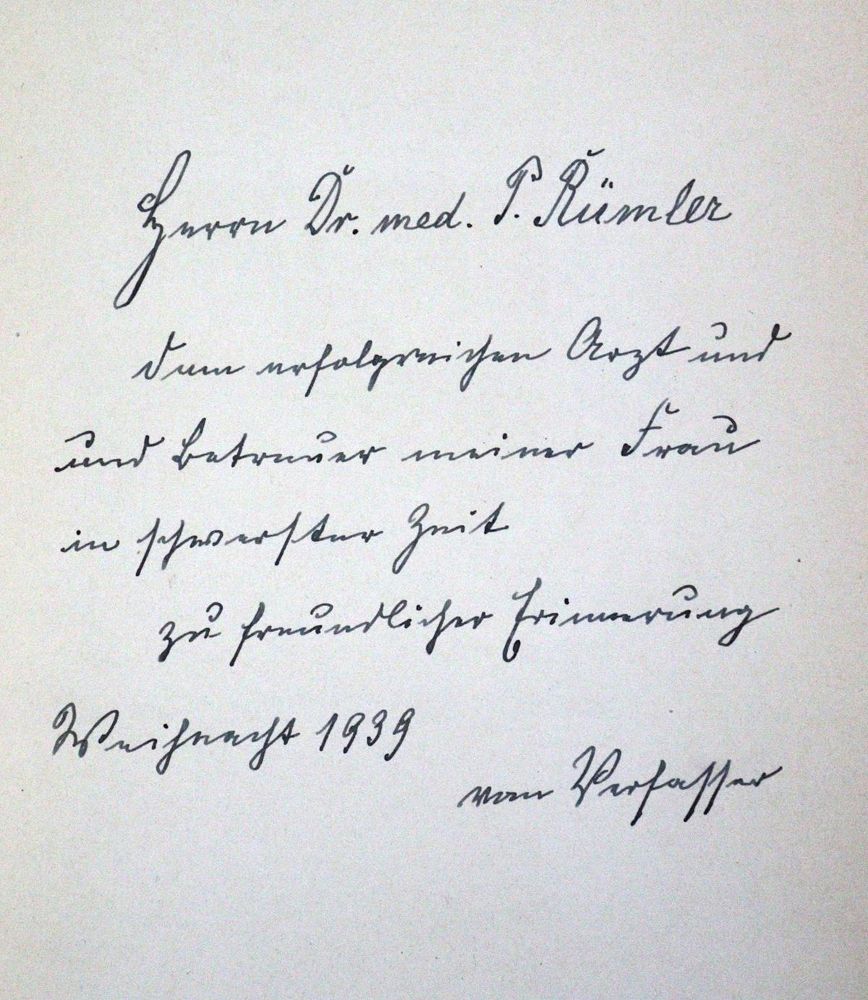 Herrn Dr. med. P. Rümler
dem erfolgreichen Arzt und
und Betreuer meiner Frau
in schwerster Zeit
zu freundlicher Erinnerung
Weihnacht 1939
vom Verfasser